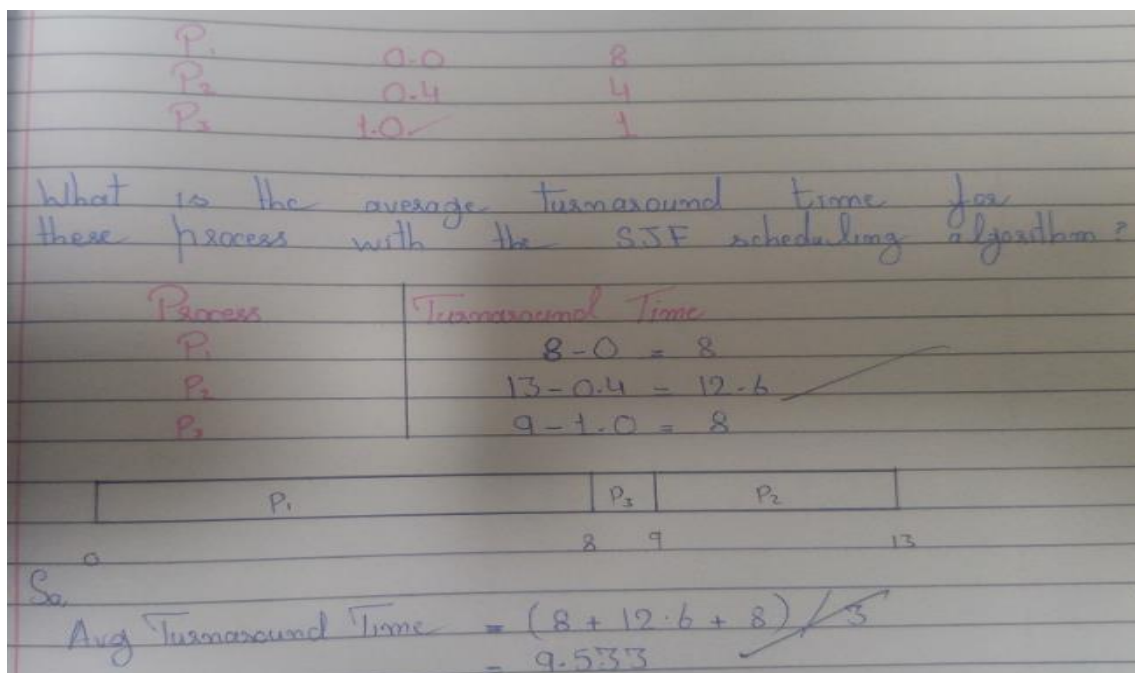 P1 0.0 8
P2 0.4 4
P3 1.0 1
What is the average turnaround time for
these process with the SJF scheduling algorithm?
Process Turnaround Time
P1 8-0 = 8
P2 13-0.4 = 12.6
P3 9-1.0 = 8
P1 P3 P2
0 8 9 13
So,
Avg Turnaround Time = (8 + 12.6 + 8) / 3
= 9.533